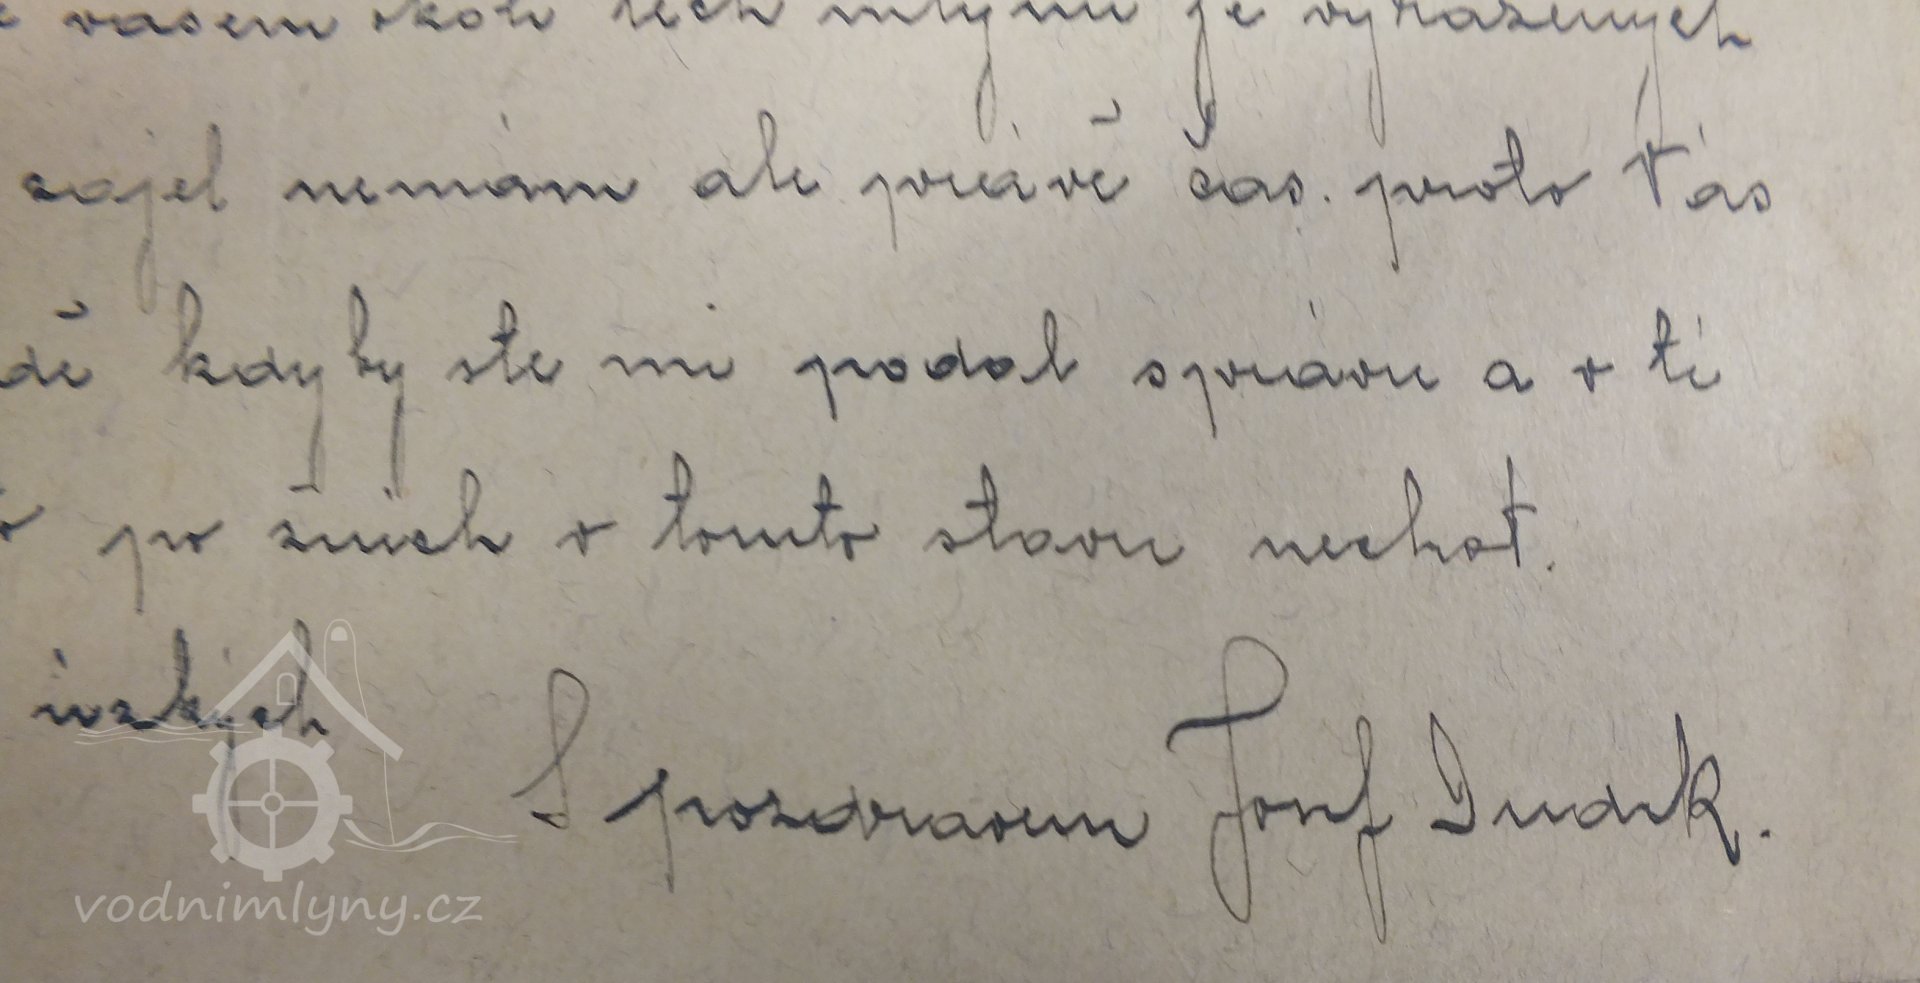 vašem okolí těch mlýnů je vyřazených
zajel nemám ale právě čas. proto Vás
kdyby ste mi podal správu a v té
po žních v tomto stavu nechat.
úzkých
S pozdravem Josef Dudek.
vodnimlyny.cz